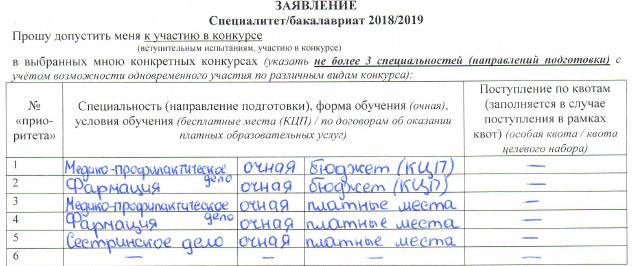 ЗАЯВЛЕНИЕ
Специалитет/бакалавриат 2018/2019
Прошу допустить меня к участию в конкурсе
(вступительным испытаниям, участию в конкурсе)
в выбранных мною конкретных конкурсах (указать не более 3 специальностей (направлений подготовки) с
учётом возможности одновременного участия по различным видам конкурса):
№ «прио-ритета» Специальность (направление подготовки), форма обучения (очная), условия обучения (бесплатные места (КЦП) / по договорам об оказании платных образовательных услуг) Поступление по квотам (заполняется в случае поступления в рамках квот) (особая квота / квота целевого набора)
1 Медико-профилактическое дело очная бюджет (КЦП) —
2 Фармация очная бюджет (КЦП) —
3 Медико-профилактическое дело очная платные места —
4 Фармация очная платные места —
5 Сестринское дело очная платные места —
6 — — — —